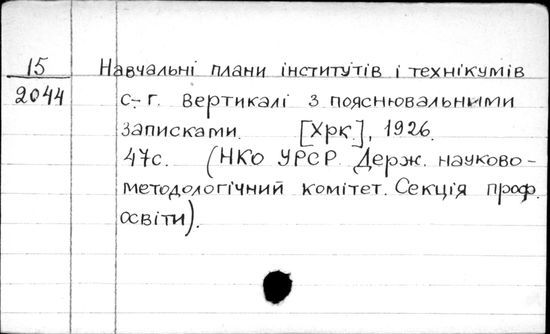 15
2044
Навчальні плани інститутів і технікумів
с-г. вертикалі з пояснювальними
записками. [Хрк.], 1926.
47с. (НКО УРСР. Держ. науково-
методологічний комітет. Секція проф.
освіти).